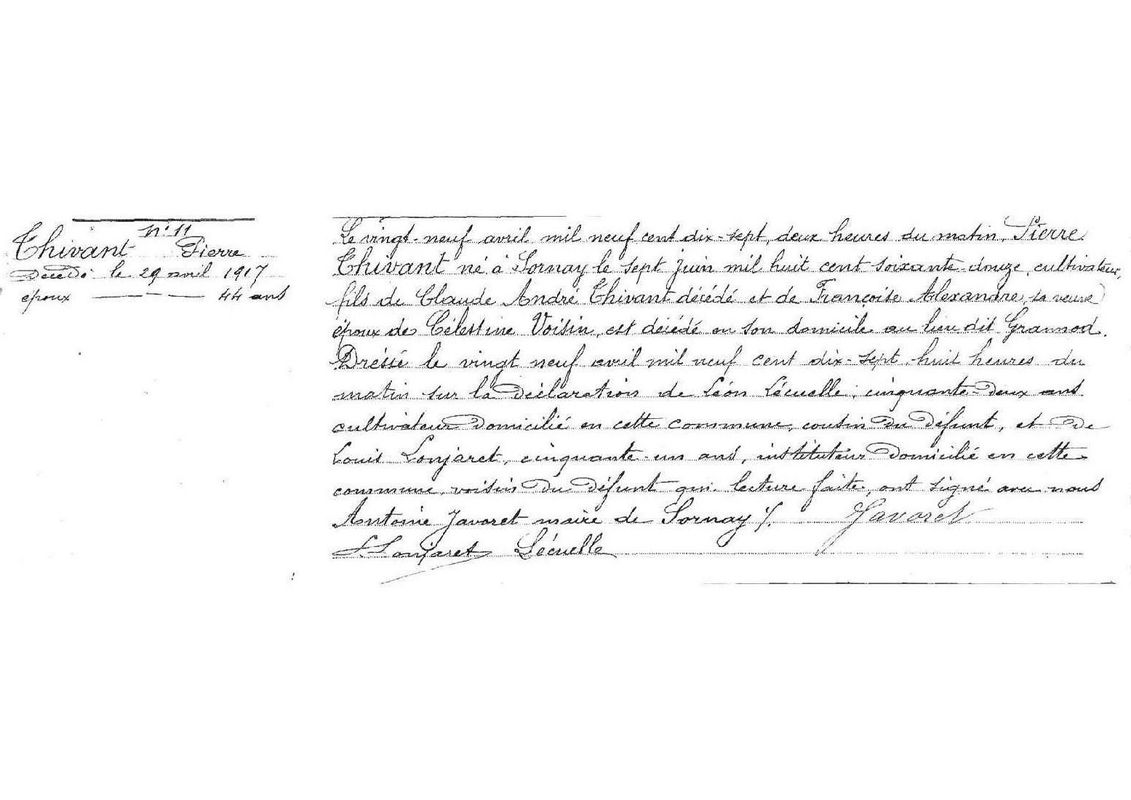 n° 11
Thivant Pierre
Décédé le 29 avril 1917
époux 44 ans
Le vingt-neuf avril mil neuf cent dix-sept, deux heures du matin, Pierre
Thivant né à Sornay le sept juin mil huit cent soixante-douze, cultivateur,
fils de Claude André Thivant décédé et de Françoise Alexandre, sa veuve
époux de Célestine Voisin, est décédé en son domicile au lieu dit Grannod.
Dressé le vingt neuf avril mil neuf cent dix-sept huit heures du
matin sur la déclaration de Léon Lécuelle, cinquante-deux ans
cultivateur domicilié en cette commune, cousin du défunt, et de
Louis Lonjaret, cinquante-un ans, instituteur domicilié en cette
commune, voisin du défunt qui, lecture faite, ont signé avec nous
Antoine Javoret maire de Sornay /. Javoret
L. Lonjaret Lécuelle